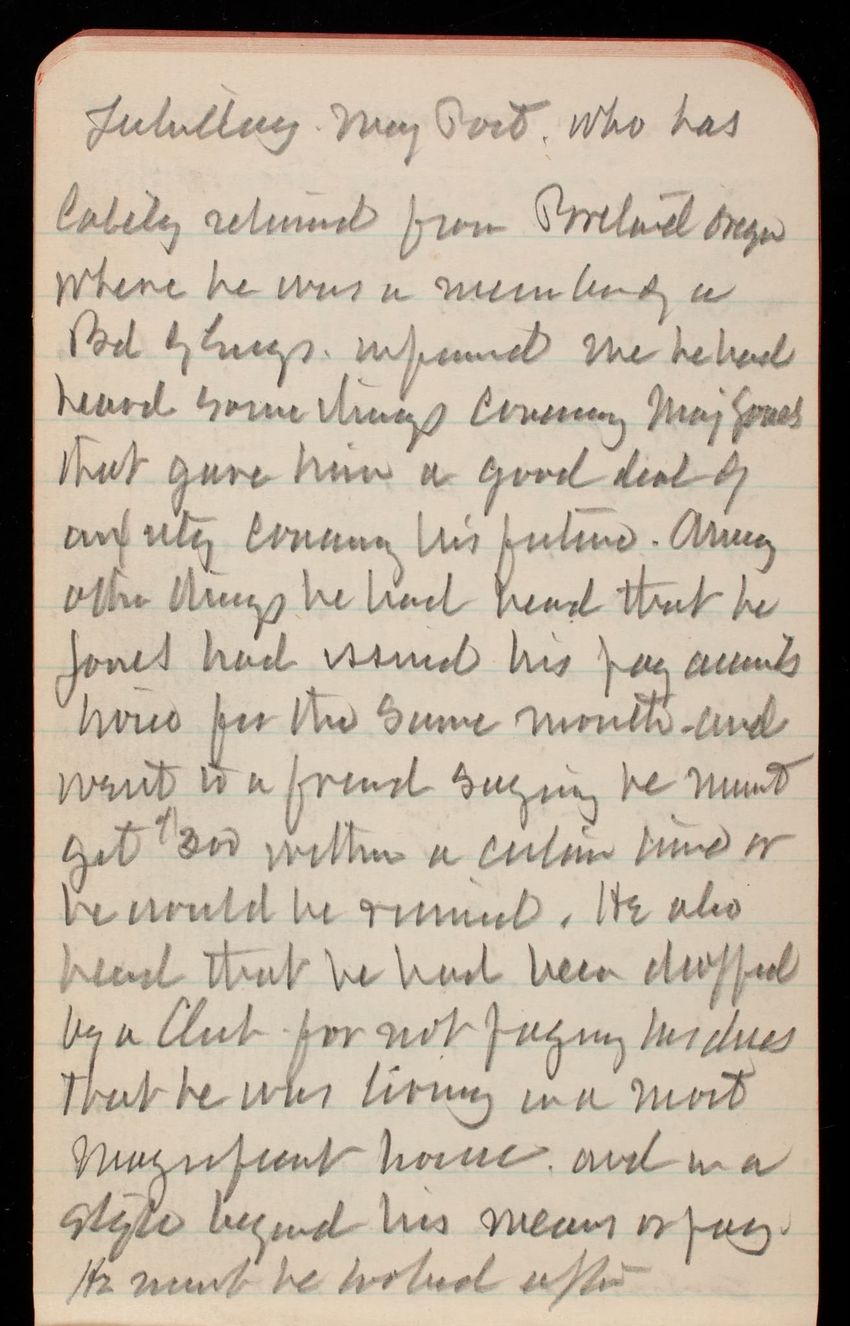 Maj Post. who has
lately returned from Portland Oregon
where he was a member of a
Bd of Engrs. informed me he had
heard some things concerning Maj Jones
that gave him a good deal of
anxiety concerning his future. Among
other things he had heard that he
Jones had issued his pay accounts
twice for the same month and
went to a friend saying he must
get $300 within a certain time or
he would be ruined. He also
heard that he had been dropped
by a Club for not paying his dues
that he was living in a most
magnificent house. and in a
style beyond his means or pay.
He must be looked after